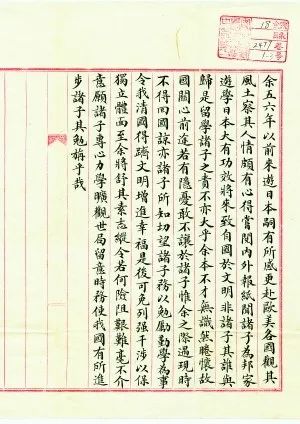 余五六年以前來遊日本嗣有所感更赴歐美各國觀其
風土察其人情頗有心得嘗閱內外報紙聞諸子為邦家
遊學日本大有功效將來致自國於文明非諸子其誰與
歸是留學諸子之責不亦大乎余本不才無識然睠懷故
國關心前途若有隱憂敢不讓於諸子惟余之際遇現時
不得回國諒亦諸子所知切望諸子務以勉勵勤學為事
令我清國得躋文明增進幸福是後可免列强干涉以保
獨立體面至余將舒其素志縱令若何險阻艱難毫不介
意願諸子專心力學曠觀世局留意時務使我國有所進
步諸子其勉旃乎哉
18
2477
1-3